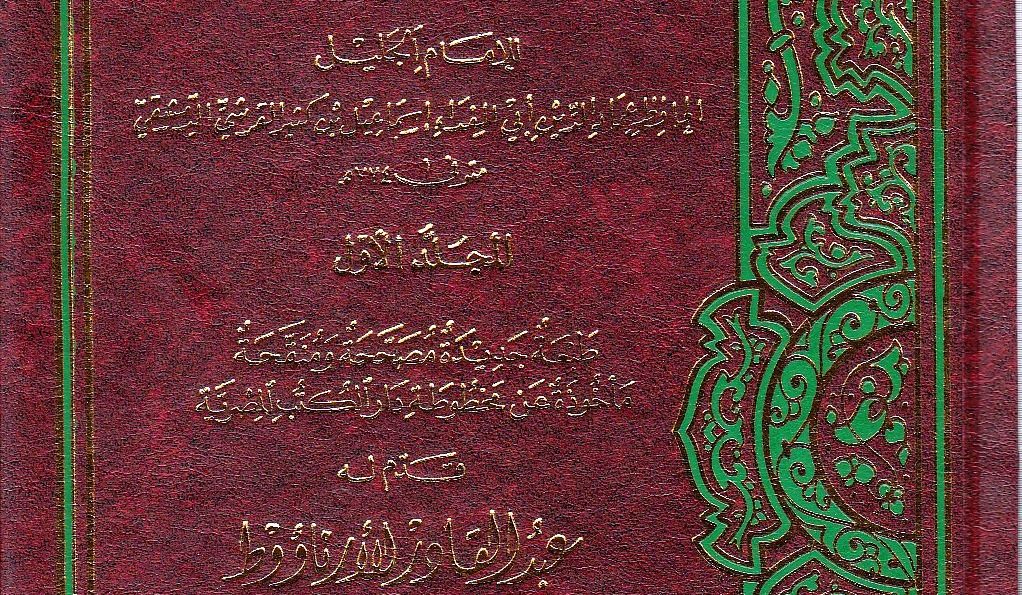 الإمَام الجَليْل
الحافِظ عِمَاد الدّيْن أبي الفِدَاء إسمَاعيْل بْن كثير القرَشيّ الدِّمَشقيّ
متوفى سنة ٧٧٤هـ
المجَلّد الأوّل
طَبعَة جَديْدَة مُصَحّحَة وَمُنقّحَة
مَأخُوذَة عَن مخطُوطة دَار الكتُب المِصْريّة
قدّم له
عبْد القادر الأرناؤوط